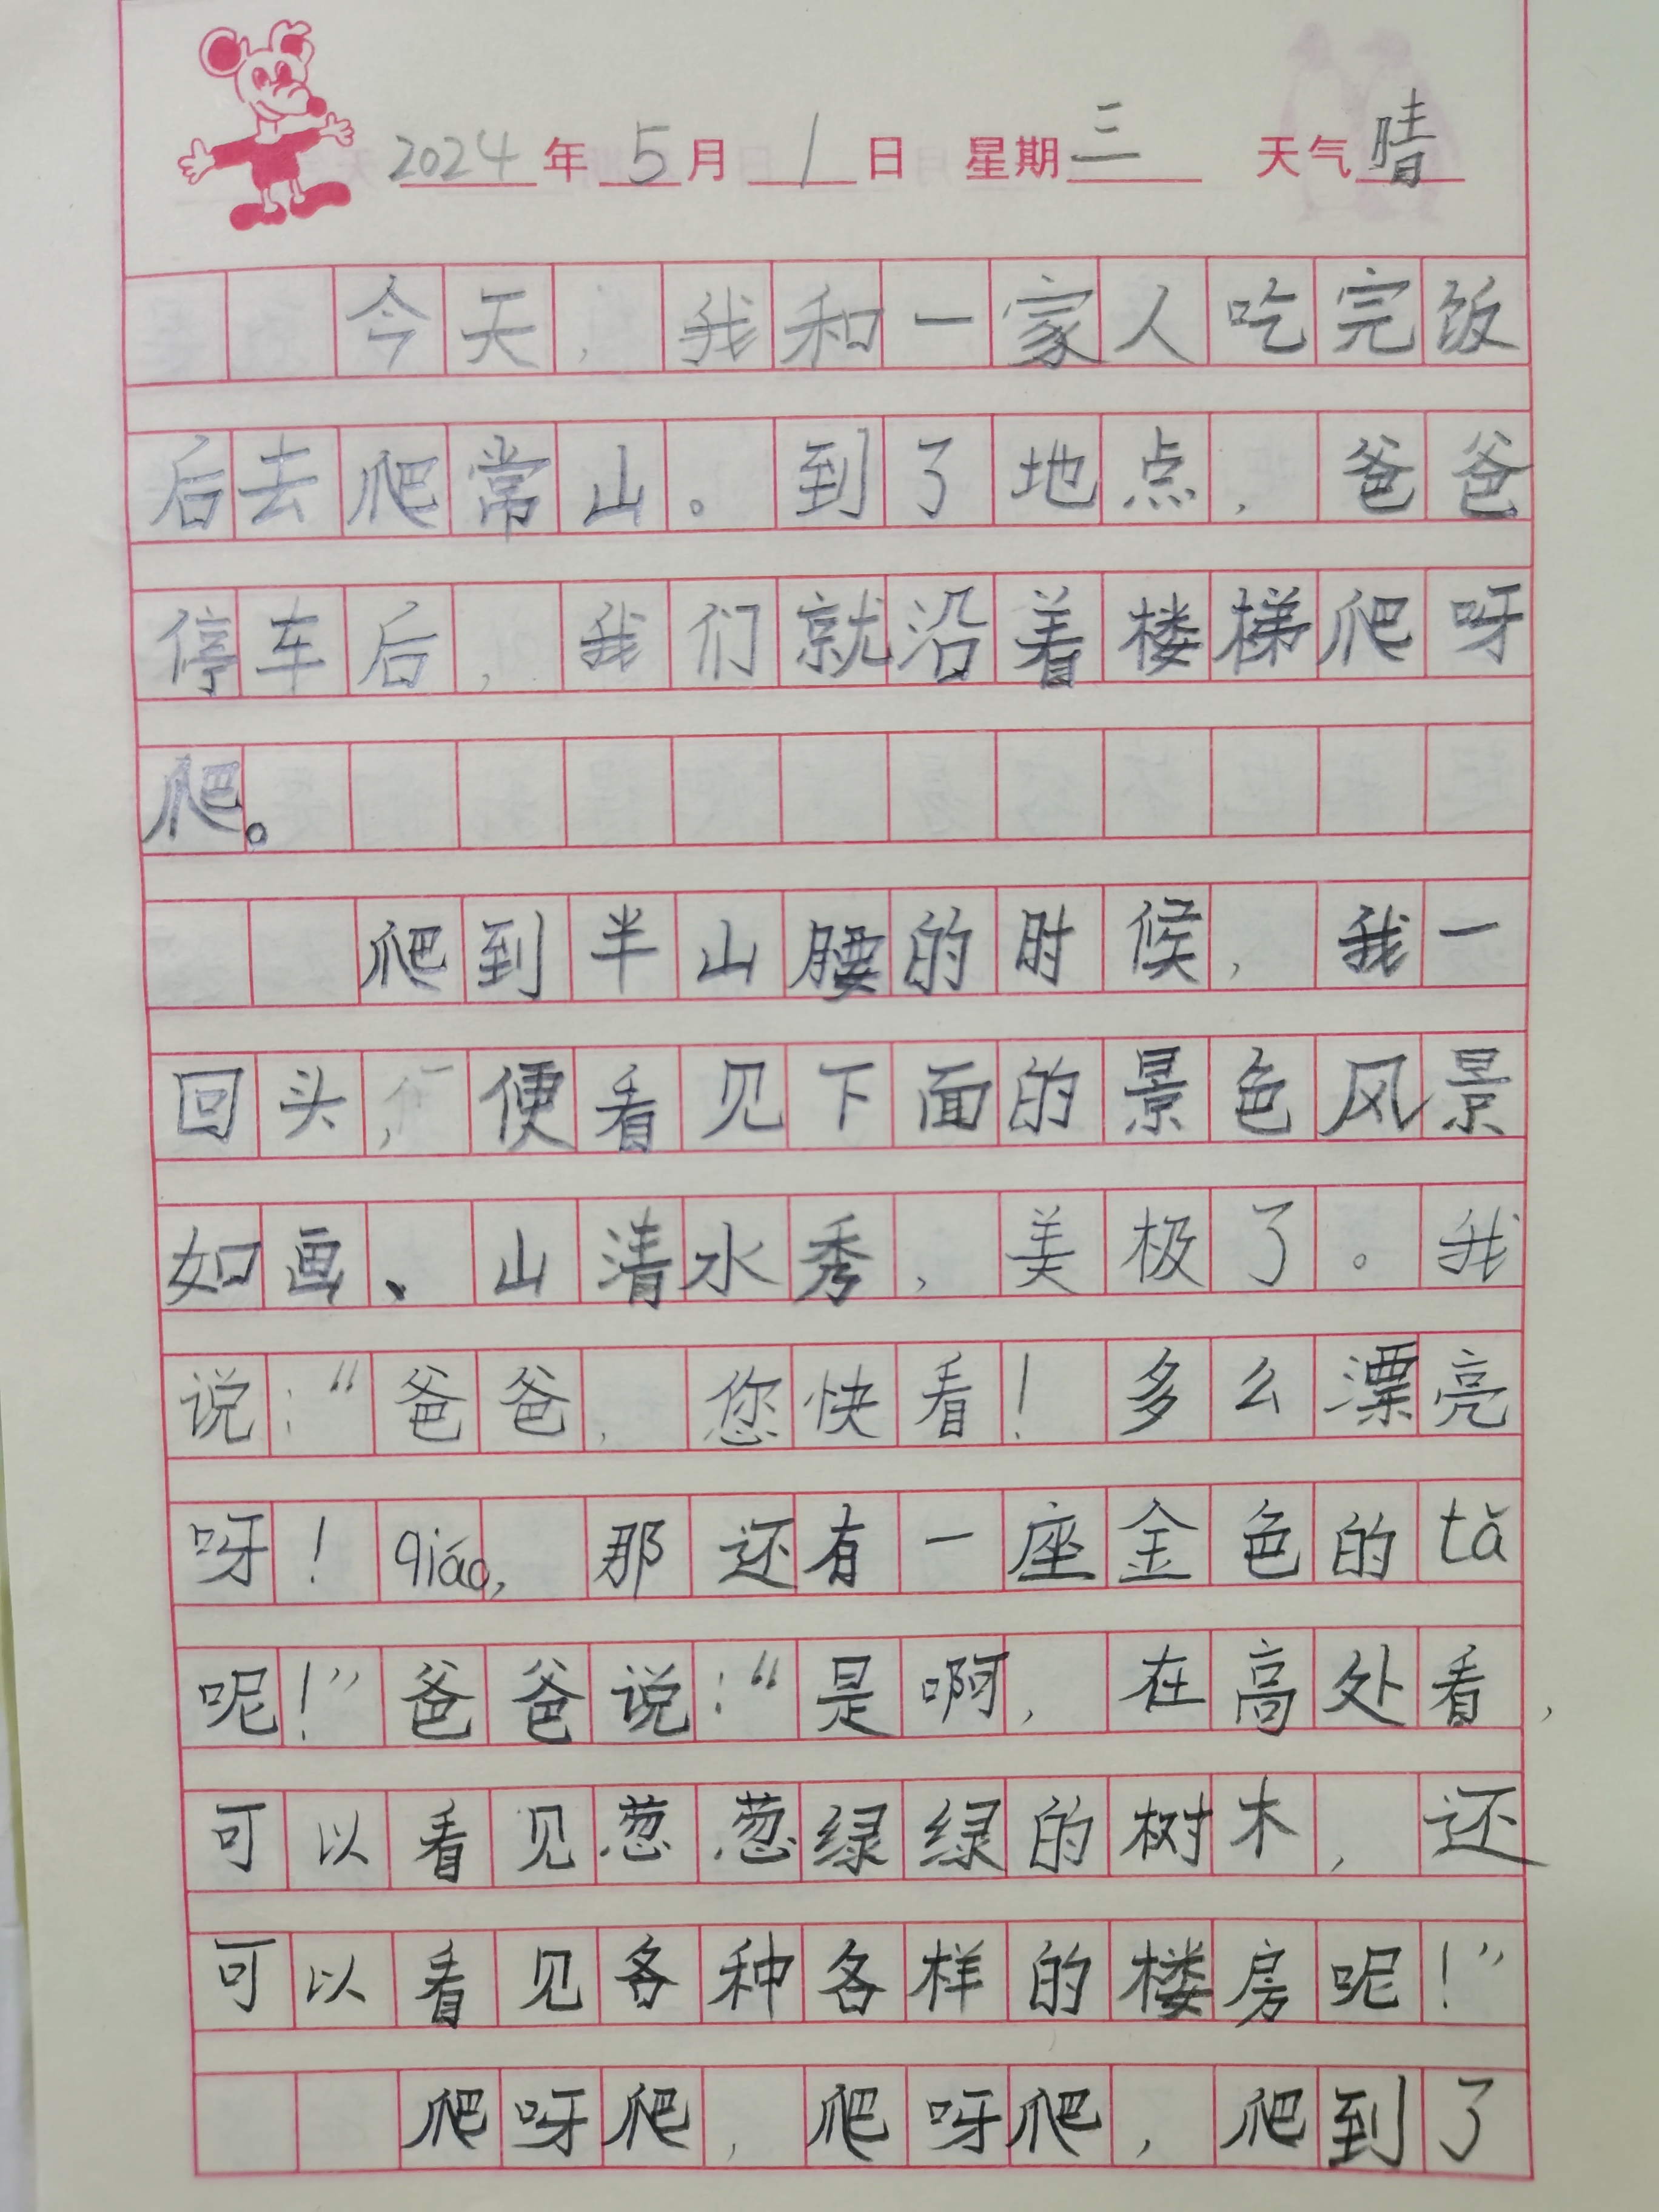 2024年5月1日 星期三 天气晴
今天，我和一家人吃完饭
后去爬常山。到了地点，爸爸
停车后，我们就沿着楼梯爬呀
爬。
爬到半山腰的时候，我一
回头，便看见下面的景色风景
如画、山清水秀，美极了。我
说：“爸爸，您快看！多么漂亮
呀！qiáo，那还有一座金色的tǎ
呢！”爸爸说：“是啊，在高处看，
可以看见葱葱绿绿的树木，还
可以看见各种各样的楼房呢！”
爬呀爬，爬呀爬，爬到了